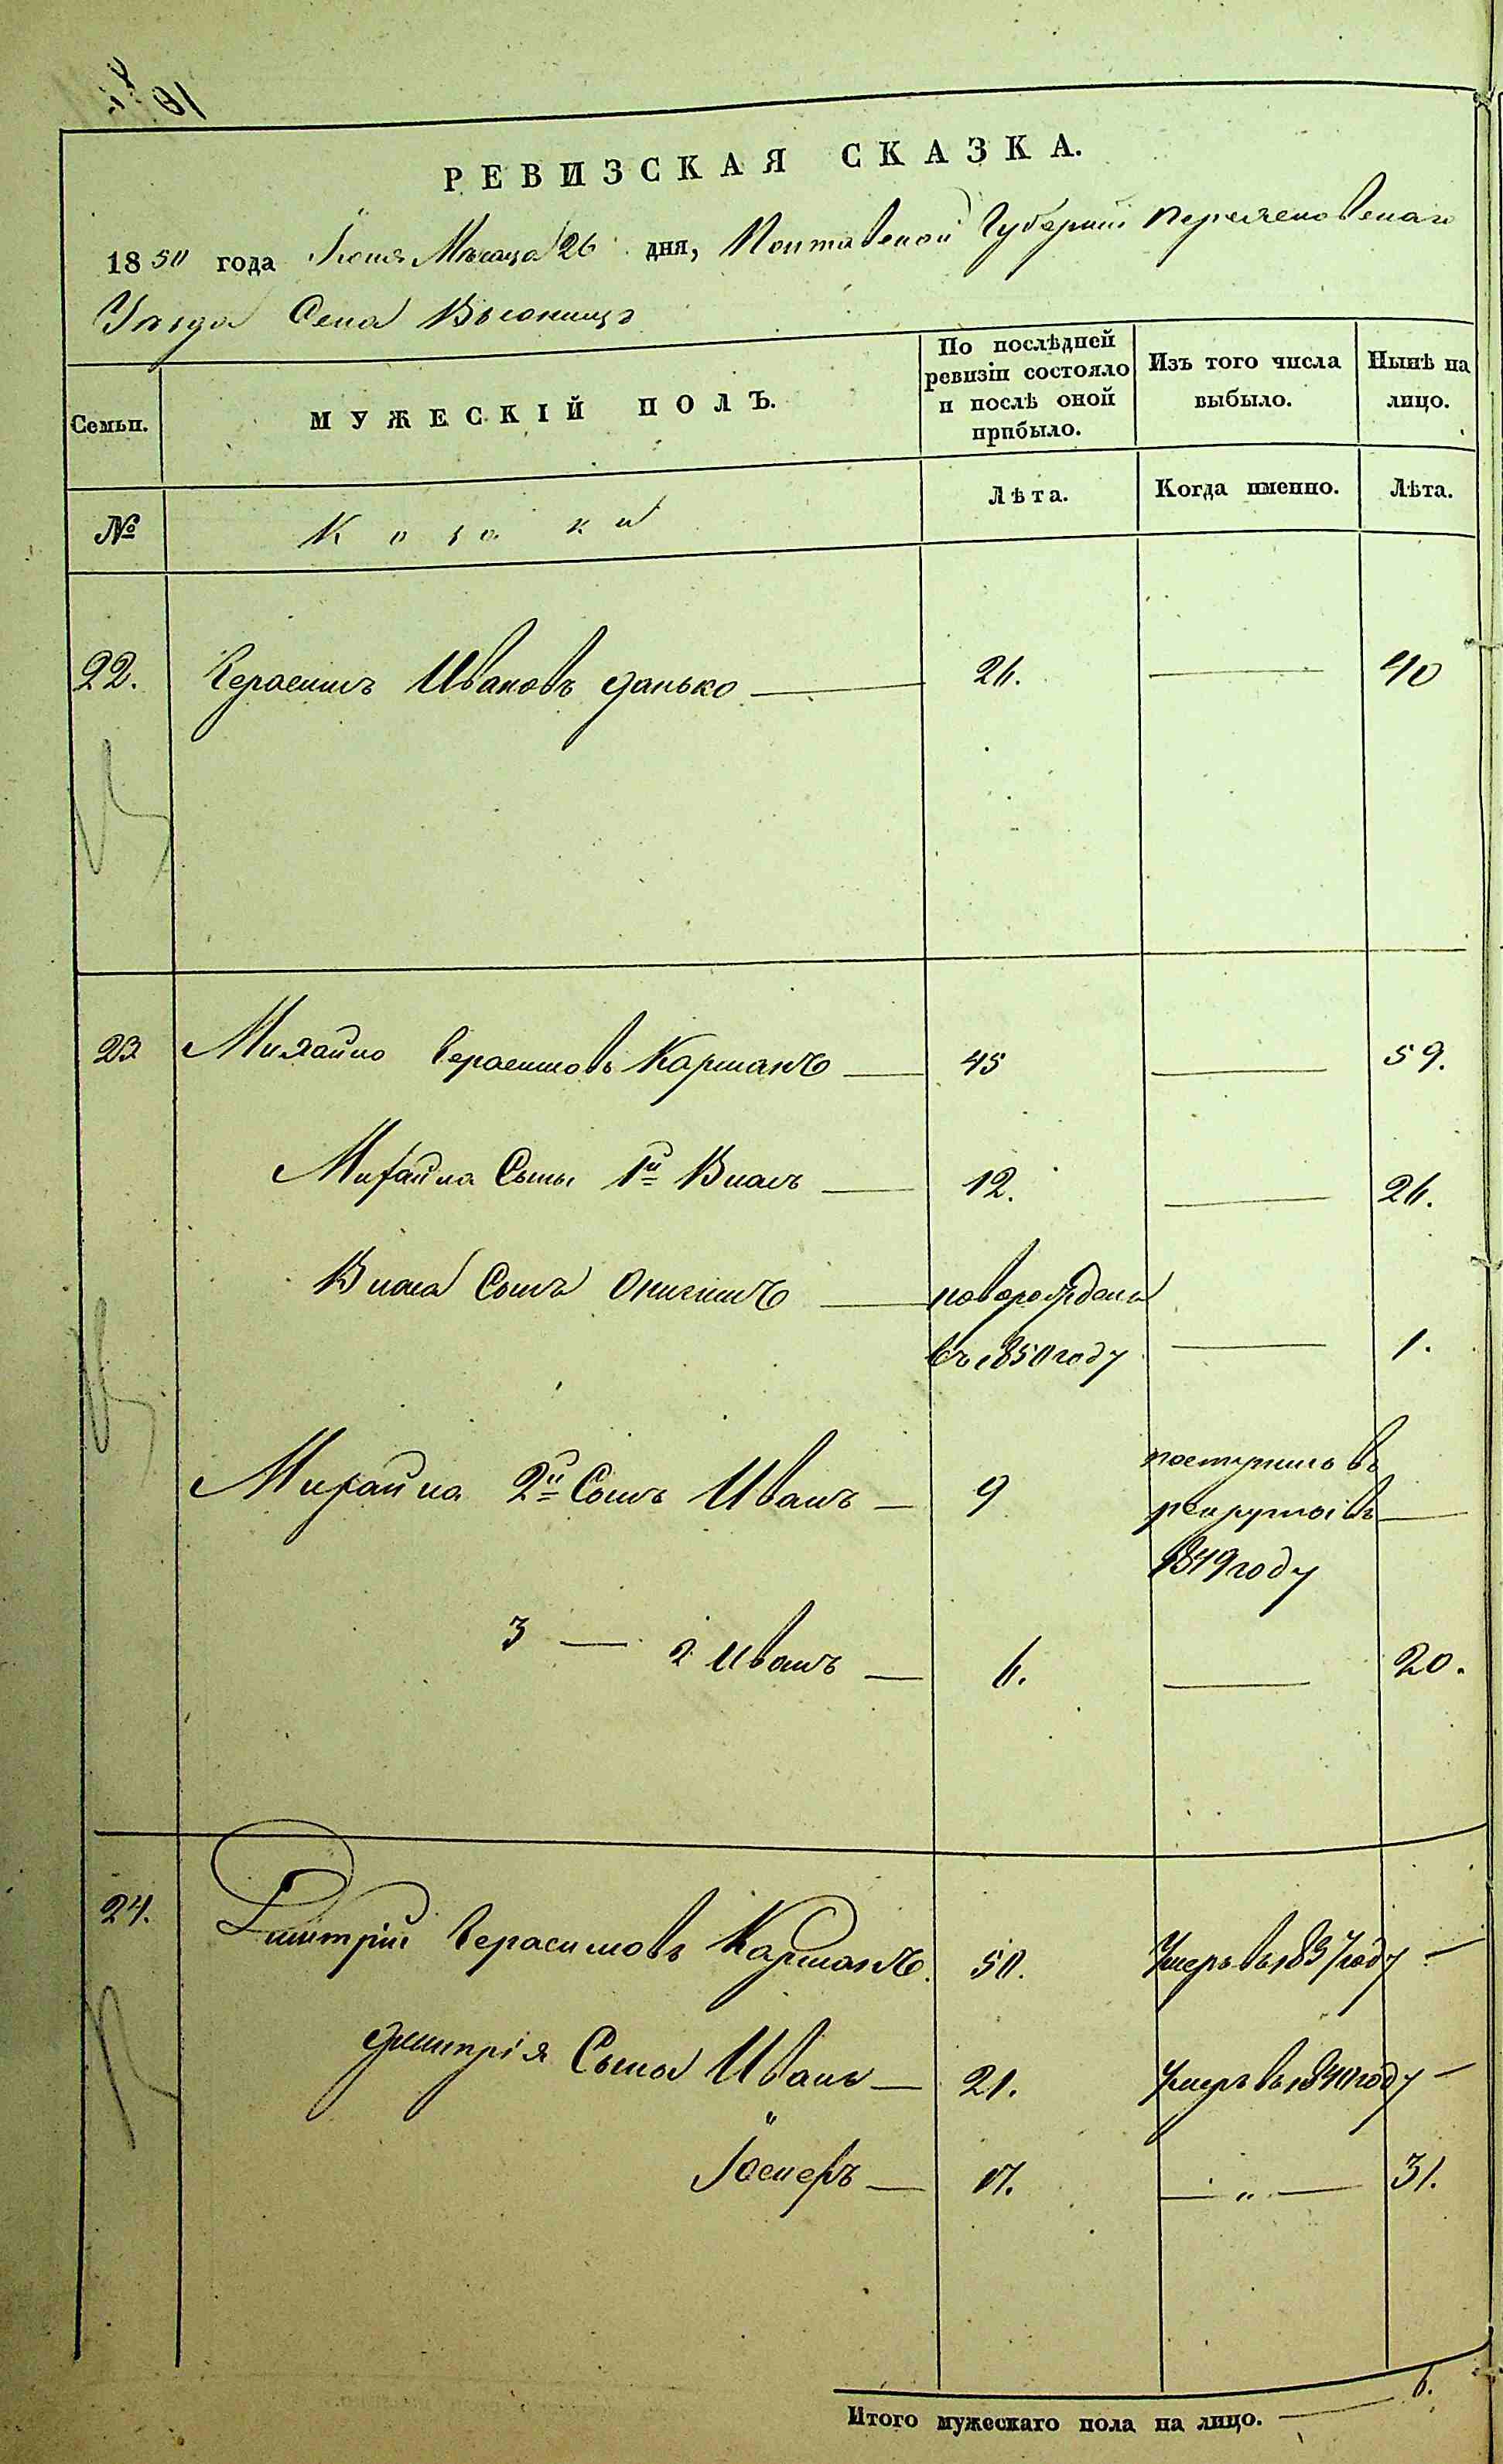 РЕВИЗСКАЯ СКАЗКА.
1850 года Іюня Мѣсяца 26 дня, Полтавской Губерніи Переяславскаго
Уѣзда Села
Семьи. МУЖЕСКІЙ ПОЛЪ. По послѣдней ревизіи состояло и послѣ оной прибыло. Изъ того числа выбыло. Нынѣ на лицо.
№ Козаки Лѣта. Когда именно. Лѣта.
22. Герасимъ Ивановъ Данько — 26. — 40
23 Михайло Герасимовъ Карманъ — 45 — 59.
Михайла Сыны 1й Власъ — 12. — 26.
Власа Сынъ — новорожденъ
въ 1850 году — 1.
Михайла 2й Сынъ Иванъ — 9 поступилъ въ
рекруты въ —
1849 году
3 — 2 Иванъ — 6. — 20.
24. Дмитрій Герасимовъ Карманъ. 50. Умеръ въ 1837 году —
Дмитрія Сыны Иванъ — 21. Умеръ въ 1840 году —
Іосифъ — 17. — " — 31.
Итого мужескаго пола на лицо. — 6.